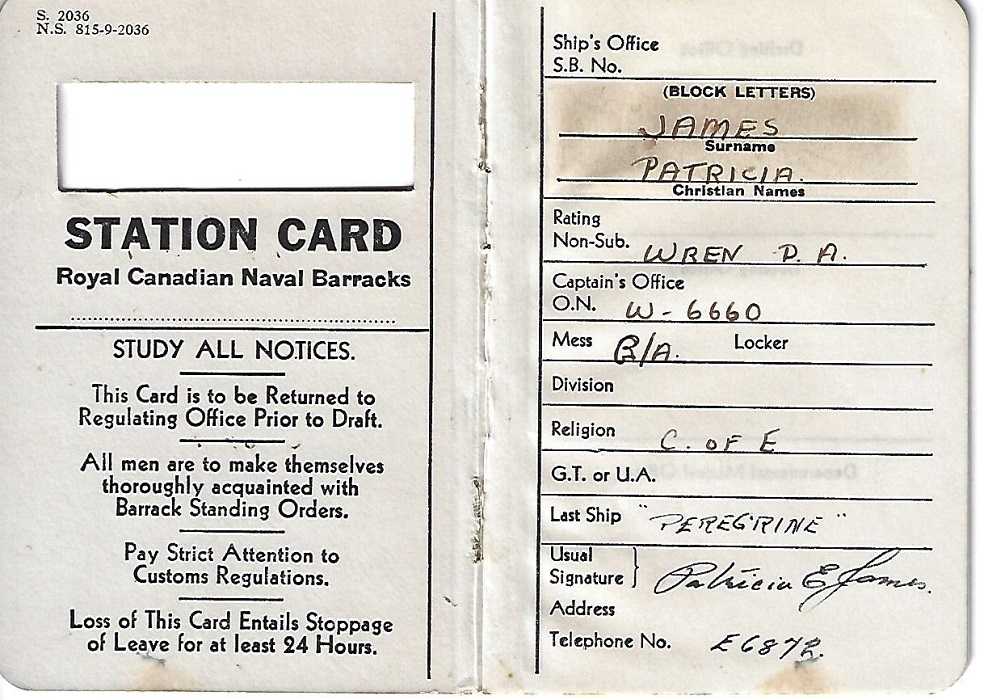 S. 2036
N.S. 815-9-2036
STATION CARD
Royal Canadian Naval Barracks
STUDY ALL NOTICES.
This Card is to be Returned to
Regulating Office Prior to Draft.
All men are to make themselves
thoroughly acquainted with
Barrack Standing Orders.
Pay Strict Attention to
Customs Regulations.
Loss of This Card Entails Stoppage
of Leave for at least 24 Hours.
Ship's Office
S.B. No.
(BLOCK LETTERS)
JAMES
Surname
PATRICIA.
Christian Names
Rating
Non-Sub. WREN P. A.
Captain's Office
O.N. W-6660
Mess R/A. Locker
Division
Religion C. OF E
G.T. or U.A.
Last Ship "PEREGRINE"
Usual
Signature } Patricia E James.
Address
Telephone No. E6872.